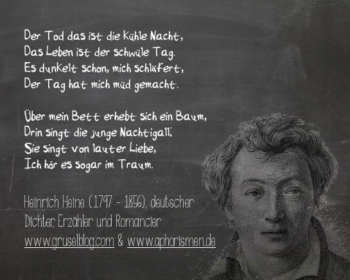 Der Tod das ist die kühle Nacht,
Das Leben ist der schwüle Tag.
Es dunkelt schon, mich schläfert,
Der Tag hat mich müd gemacht.
Über mein Bett erhebt sich ein Baum,
Drin singt die junge Nachtigall;
Sie singt von lauter Liebe,
Ich hör es sogar im Traum.
Heinrich Heine (1797 - 1856), deutscher
Dichter, Erzähler und Romancier
www.gruselblog.com & www.aphorismen.de